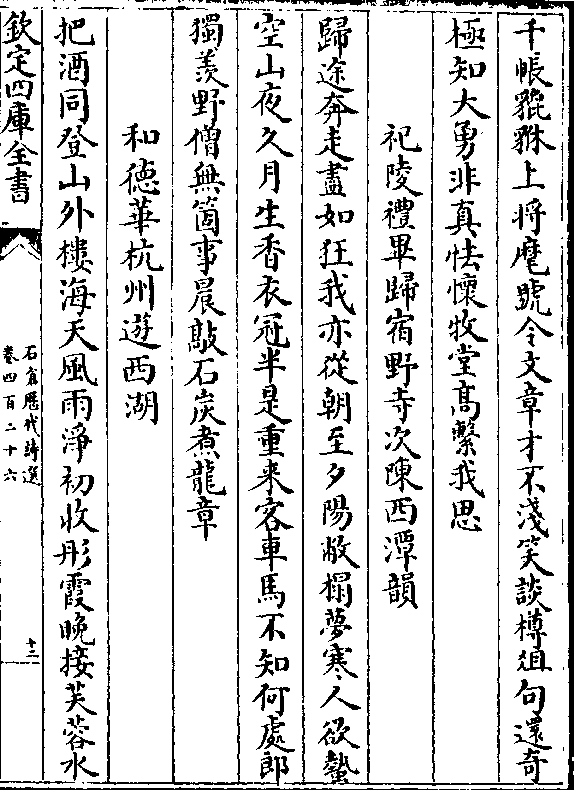 千帳貔貅上将麾號令文章才不淺笑談樽俎句還奇
極知大勇非真怯懷牧堂髙繫我思
祀陵禮畢歸宿野寺次陳西潭韻
歸途奔走盡如狂我亦從朝至夕陽敝榻夢寒人欲蟄
空山夜久月生香衣冠半是重来客車馬不知何處郎
獨羨野僧無箇事晨敲石炭煮龍章
和德華杭州遊西湖
把酒同登山外樓海天風雨淨初收彤霞晚接芙蓉水
欽定四庫全書
石倉歷代詩選
卷四百二十六
十三